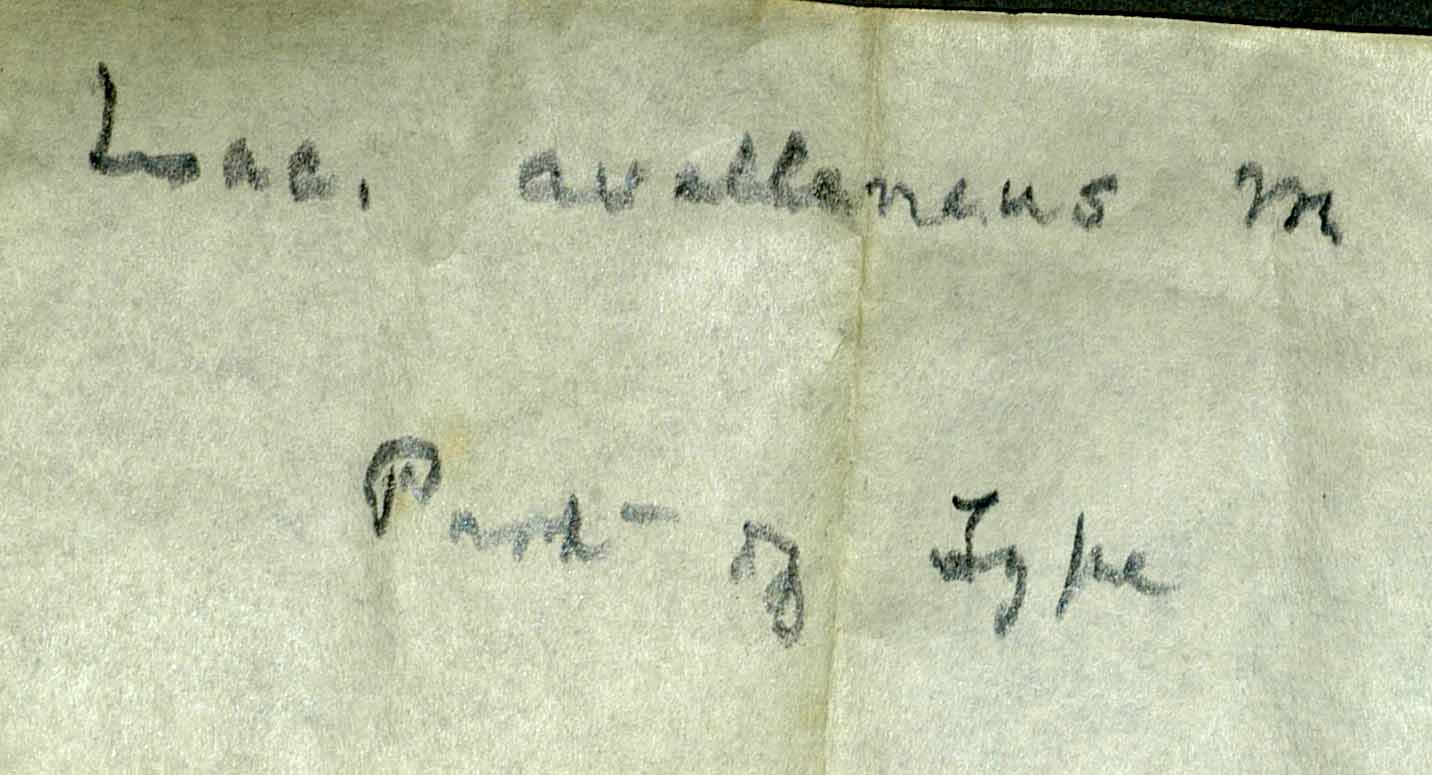 Lac. avellaneus m
Part of Type